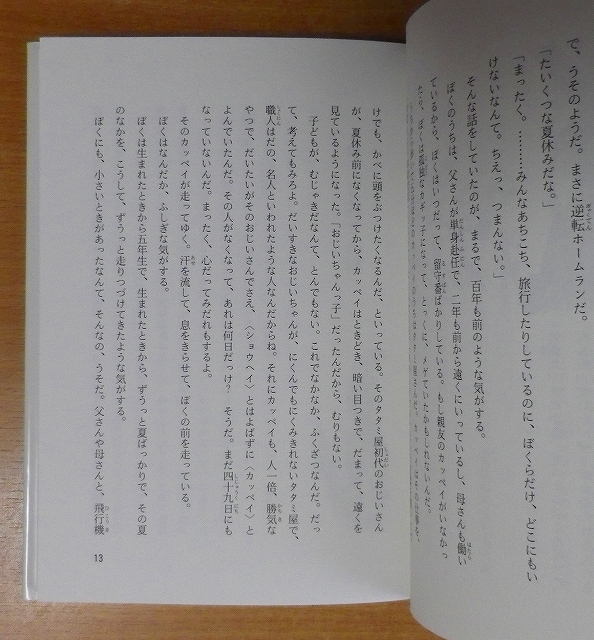 で、うそのようだ。まさに逆転ホームランだ。
「たいくつな夏休みだな。」
「まったく。………みんなあちこち、旅行したりしているのに、ぼくらだけ、どこにもい
けないなんて。ちえっ、つまんない。」
そんな話をしていたのが、まるで、百年も前のような気がする。
ぼくのうちは、父さんが単身赴任で、二年も前から遠くにいっているし、母さんも働い
ているから、ぼくはいつだって、留守番ばかりしている。もし親友のカッペイがいなかっ
たら、ぼくは孤独なカギッ子になって、とっくに、メゲていたかもしれないんだ。
けでも、かべに頭をぶつけたくなるんだ、といっている。そのタタミ屋初代のおじいさん
が、夏休み前になくなってから、カッペイはときどき、暗い目つきで、だまって、遠くを
見ているようになった。「おじいちゃんっ子」だったんだから、むりもない。
子どもが、むじゃきだなんて、とんでもない。これでなかなか、ふくざつなんだ。だっ
て、考えてもみろよ。だいすきなおじいちゃんが、にくんでもにくみきれないタタミ屋で、
職人はだの、名人といわれたような人なんだからね。それにカッペイも、人一倍、勝気な
やつで、だいたいがそのおじいさんでさえ、〈ショウヘイ〉とはよばずに〈カッペイ〉と
よんでいたんだ。その人がなくなって、あれは何日だっけ？　そうだ。まだ四十九日にも
なっていないんだ。まったく、心だってみだれもするよ。
そのカッペイが走ってゆく。汗を流して、息をきらせて、ぼくの前を走っている。
ぼくはなんだか、ふしぎな気がする。
ぼくは生まれたときから五年生で、生まれたときから、ずうっと夏ばっかりで、その夏
のなかを、こうして、ずうっと走りつづけてきたような気がする。
ぼくにも、小さいときがあったなんて、そんなの、うそだ。父さんや母さんと、飛行機
13